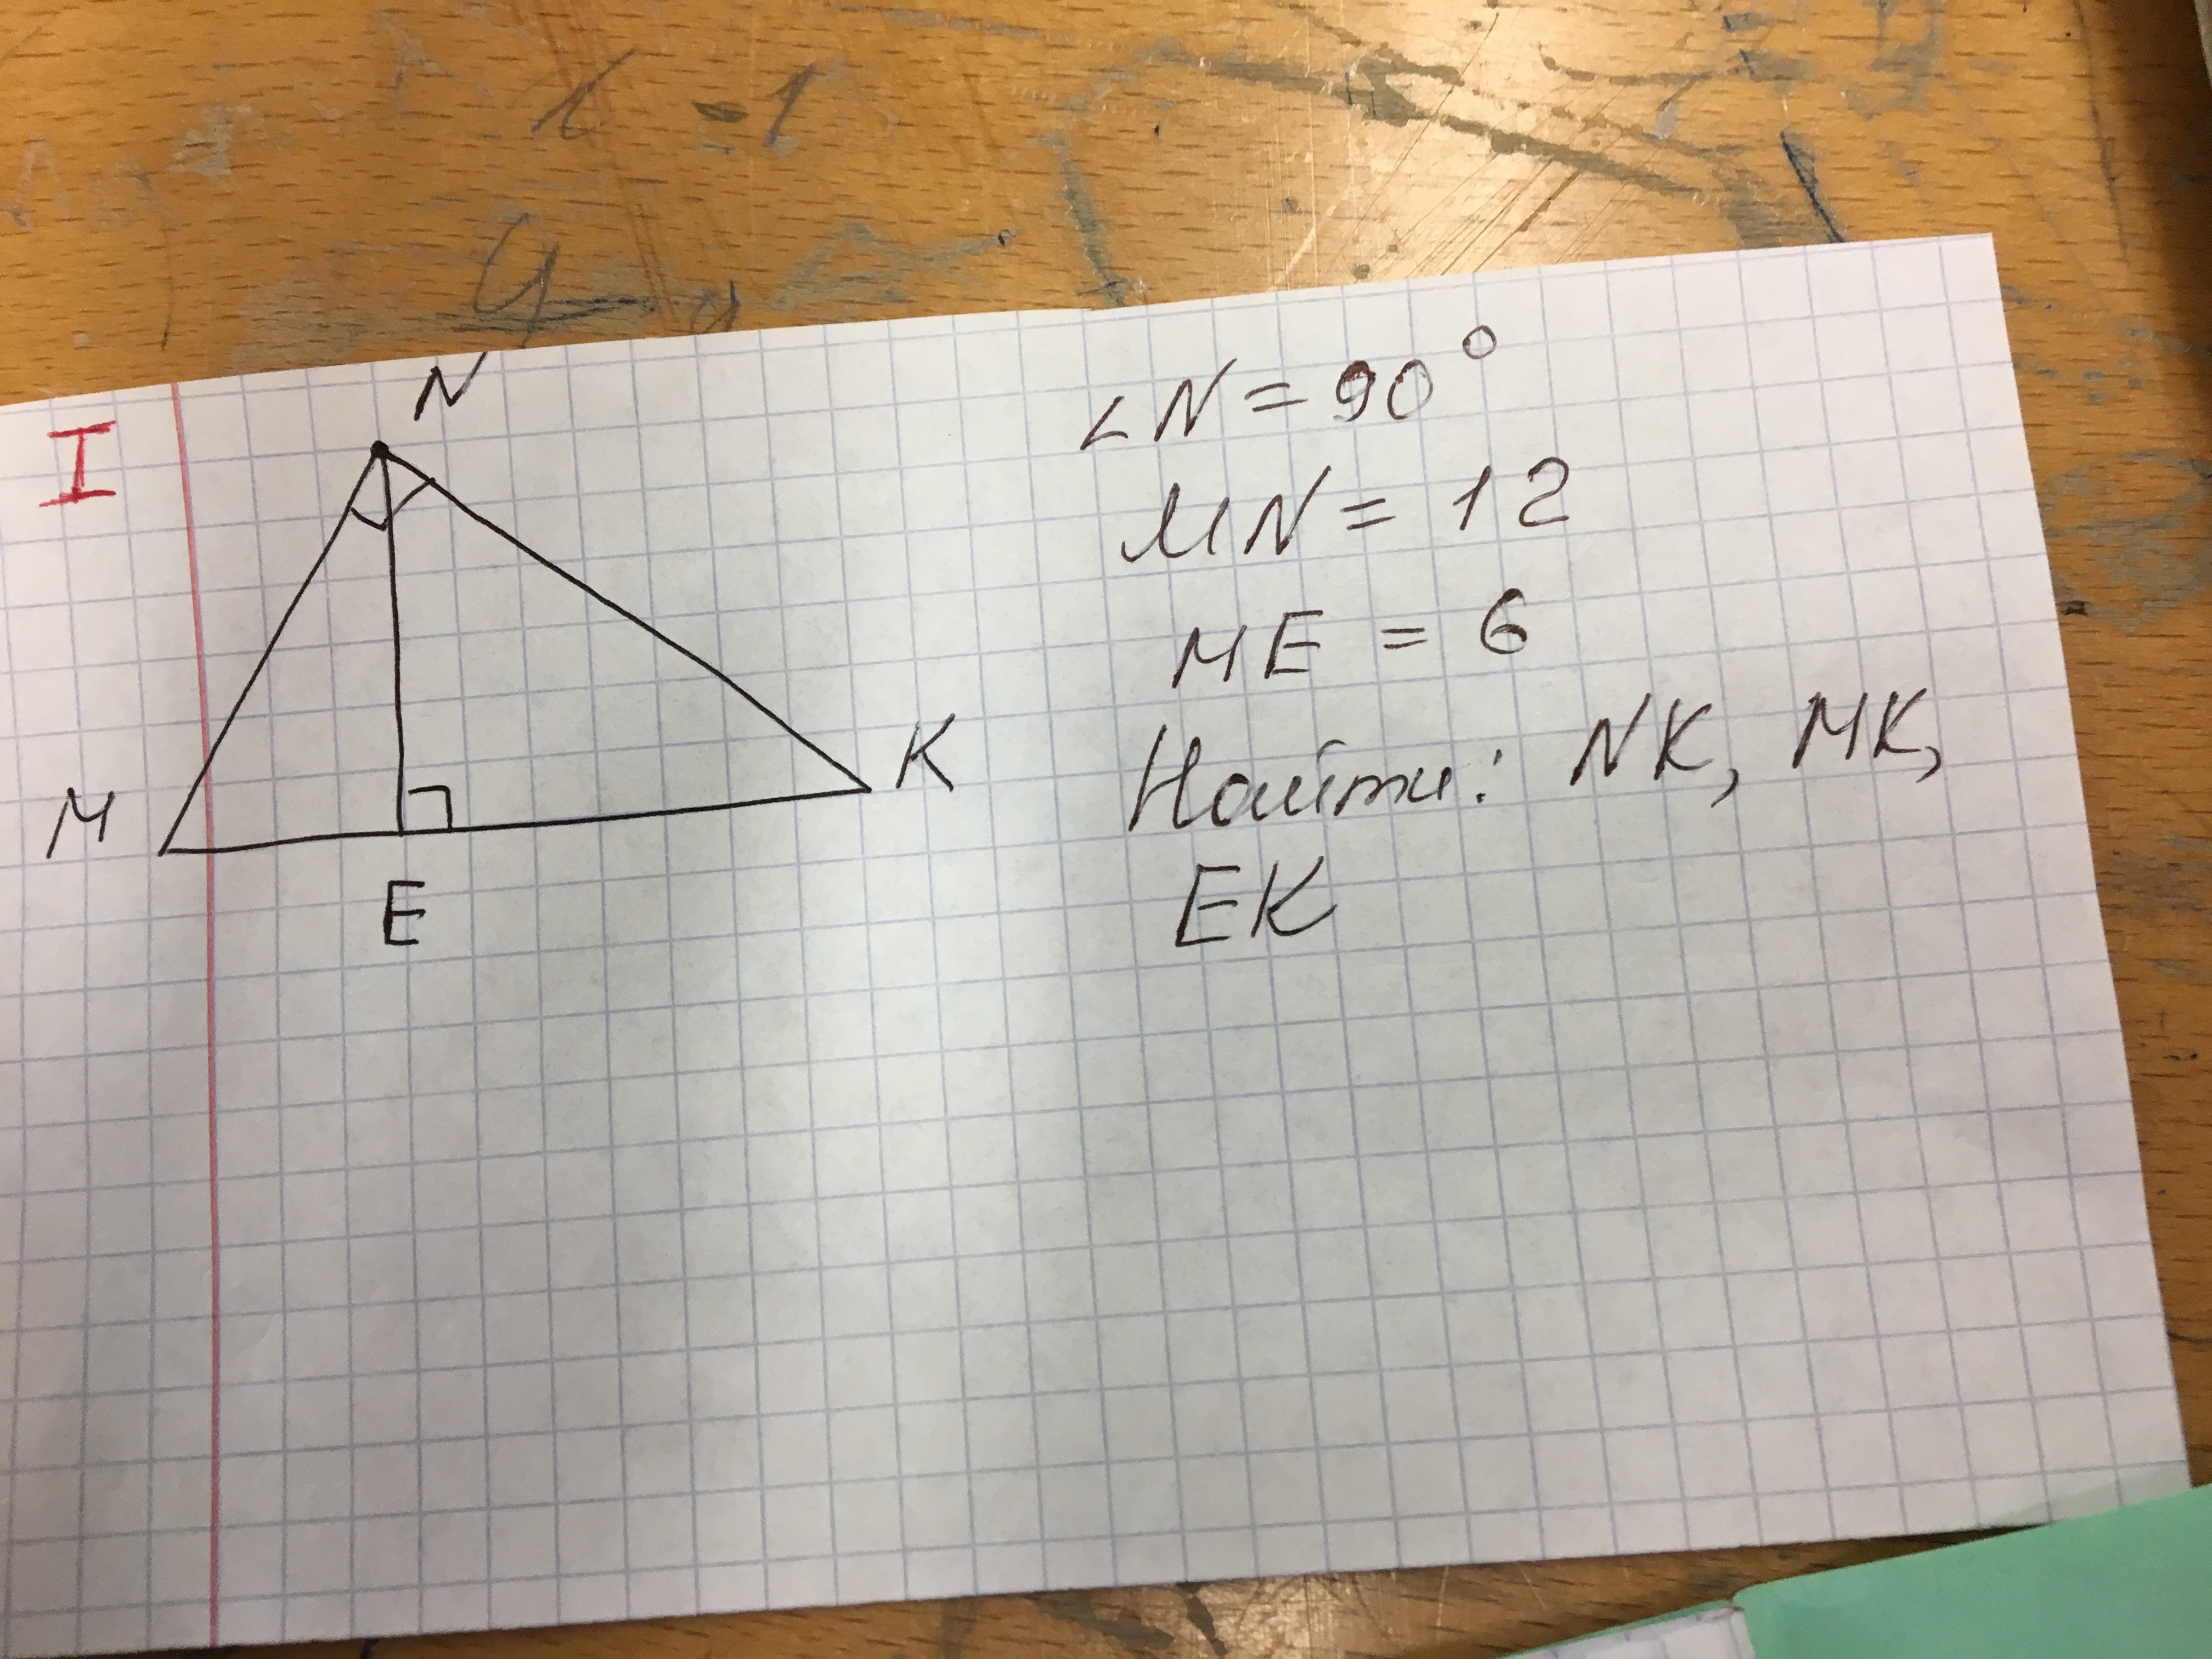 I
N
M
E
K
∠N = 90°
MN = 12
ME = 6
Найти: NK, MK,
EK